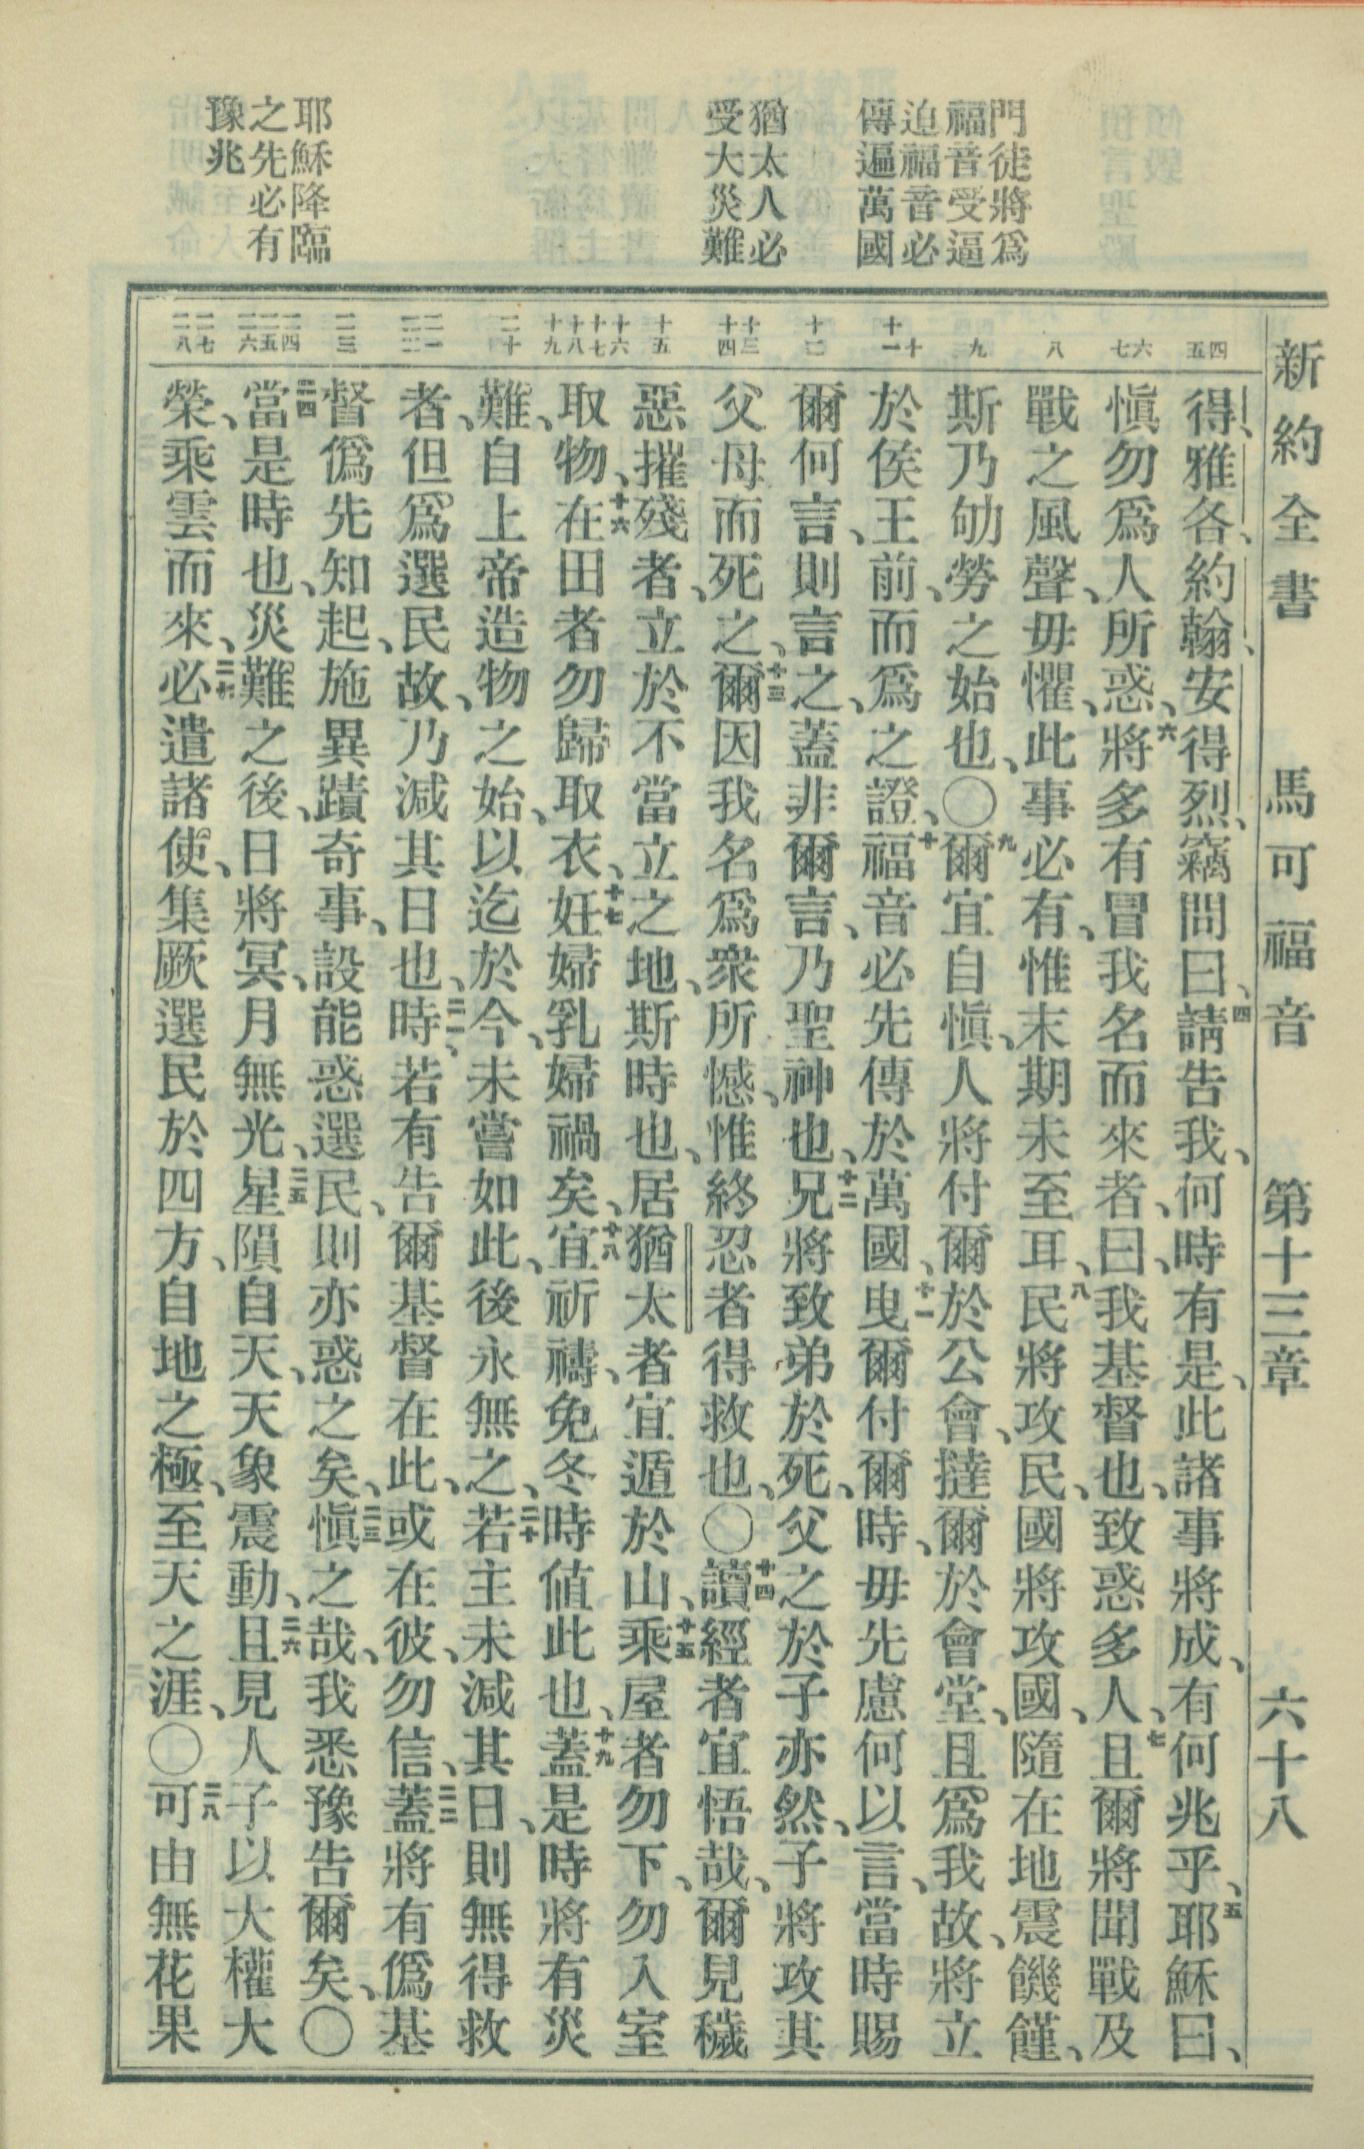 新約全書　馬可福音　第十三章　六十八
門徒將爲
福音受逼
迫福音必
傳遍萬國
猶太人必
受大災難
耶穌降臨
之先必有
豫兆
四
五
六
七
八
九
十
十一
十二
十三
十四
十五
十六
十七
十八
十九
二十
二一
二二
二三
二四
二五
二六
二七
二八
得、雅各、約翰、安得烈、竊問曰、四請告我、何時有是、此諸事將成、有何兆乎、五耶穌曰、
愼勿爲人所惑、六將多有冒我名而來者、曰、我基督也、致惑多人、七且爾將聞戰及
戰之風聲、毋懼、此事必有、惟末期未至耳、八民將攻民、國將攻國、隨在地震饑饉、
斯乃劬勞之始也、〇九爾宜自愼、人將付爾於公會、撻爾於會堂、且爲我故、將立
於侯王前、而爲之證、十福音必先傳於萬國、十一曳爾付爾時、毋先慮何以言、當時賜
爾何言、則言之、蓋非爾言、乃聖神也、十二兄將致弟於死、父之於子亦然、子將攻其
父母而死之、十三爾因我名爲衆所憾、惟終忍者得救也、〇十四讀經者宜悟哉、爾見穢
惡摧殘者、立於不當立之地、斯時也、居猶太者宜遁於山、十五乘屋者勿下、勿入室
取物、十六在田者勿歸取衣、十七妊婦乳婦禍矣、十八宜祈禱、免冬時值此也、十九蓋是時將有災
難、自上帝造物之始、以迄於今、未嘗如此、後永無之、二十若主未減其日、則無得救
者、但爲選民故、乃減其日也、二一時、若有告爾基督在此、或在彼、勿信、二二蓋將有僞基
督僞先知起、施異蹟奇事、設能惑選民、則亦惑之矣、二三愼之哉、我悉豫告爾矣、〇
二四當是時也、災難之後、日將冥、月無光、二五星隕自天、天象震動、二六且見人子以大權大
榮、乘雲而來、二七必遣諸使、集厥選民於四方、自地之極、至天之涯、〇二八可由無花果